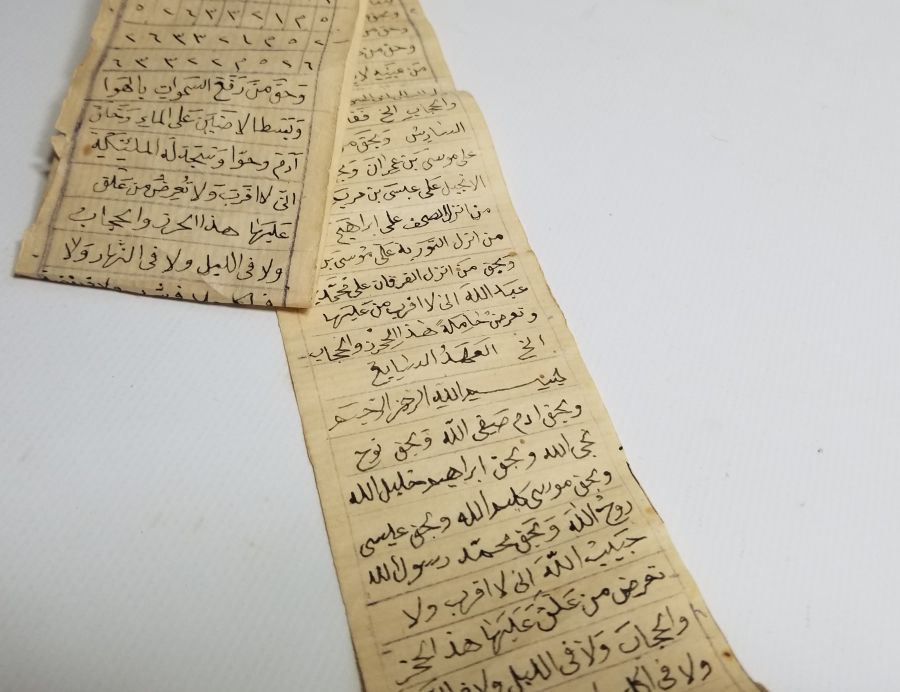 ٥ ٣ ١ ٢ ٣ ٣ ٦ ٢ ٥
٢ ٥ ٣ ١ ٢ ٣ ٣ ٦ ٢
٦ ٢ ٥ ٣ ٢ ٢ ٣ ٣ ٦
وَحَقِّ مَنْ رَفَعَ السَّمٰوات بالهوا
الاضين عَلى الماءِ
آدَم وحوّا وَسَجَدَ لَه الملئِكة
انى لا اقرَبَ ولا تُعرِضُ من عَلق
عَلَيْهَا هذا الحرز والحجاب
ولا فى الليل ولا فى النَّهار ولا
والحجاب الخ
السادس وبحق
على موسى بن عمران
الانجيل على عيسى بن مريم
من انزل الصحف على ابراهيم
من انزل التورية على موسى بن
وبحق من انزل الفرقان على محمد
عبد الله انى لا اقرب من عليها
وتعرض حاملة هذا الحرز والحجاب
الخ العَهْدُ السابع
بســـم الله الرحمن الرحيم
وبحق ادم صفى الله وبحق نوح
نجى الله وبحق ابراهيم خليل الله
وبحق موسى كليم الله وبحق عيسى
روح الله وَبحق محمّد رسول الله
حبيب اللّه انى لا اقرب ولا
تعرض من عَلّق عَلَيْهَا هذ الحرز
والحجاب وَلا فى الليل ولا
ولا فى